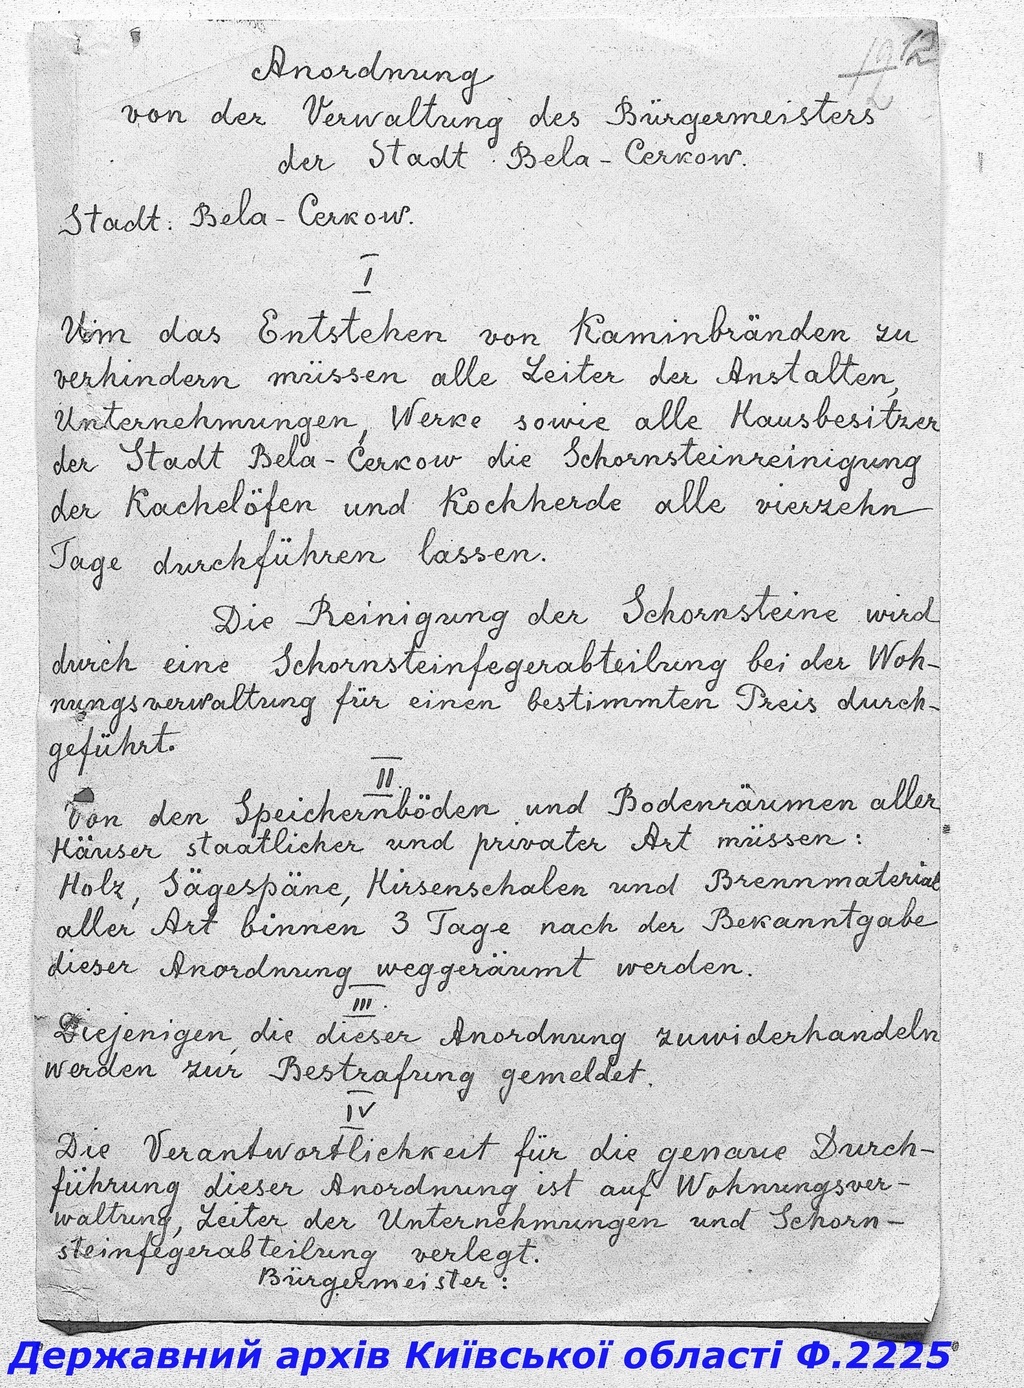 12
Anordnung
von der Verwaltung des Bürgermeisters
der Stadt Bela-Cerkow.
Stadt: Bela-Cerkow.
I
Um das Entstehen von Kaminbränden zu
verhindern müssen alle Leiter der Anstalten,
Unternehmungen, Werke sowie alle Hausbesitzer
der Stadt Bela-Cerkow die Schornsteinreinigung
der Kachelöfen und Kochherde alle vierzehn
Tage durchführen lassen.
Die Reinigung der Schornsteine wird
durch eine Schornsteinfegerabteilung bei der Woh-
nungsverwaltung für einen bestimmten Preis durch-
geführt.
II.
Von den Speichernböden und Bodenräumen aller
Häuser staatlicher und privater Art müssen:
Holz, Sägespäne, Hirsenschalen und Brennmaterial
aller Art binnen 3 Tage nach der Bekanntgabe
dieser Anordnung weggeräumt werden.
III.
Diejenigen, die dieser Anordnung zuwiderhandeln
werden zur Bestrafung gemeldet.
IV
Die Verantwortlichkeit für die genaue Durch-
führung dieser Anordnung ist auf Wohnungsver-
waltung, Leiter der Unternehmungen und Schorn-
steinfegerabteilung verlegt.
Bürgermeister:
Державний архів Київської області Ф.2225